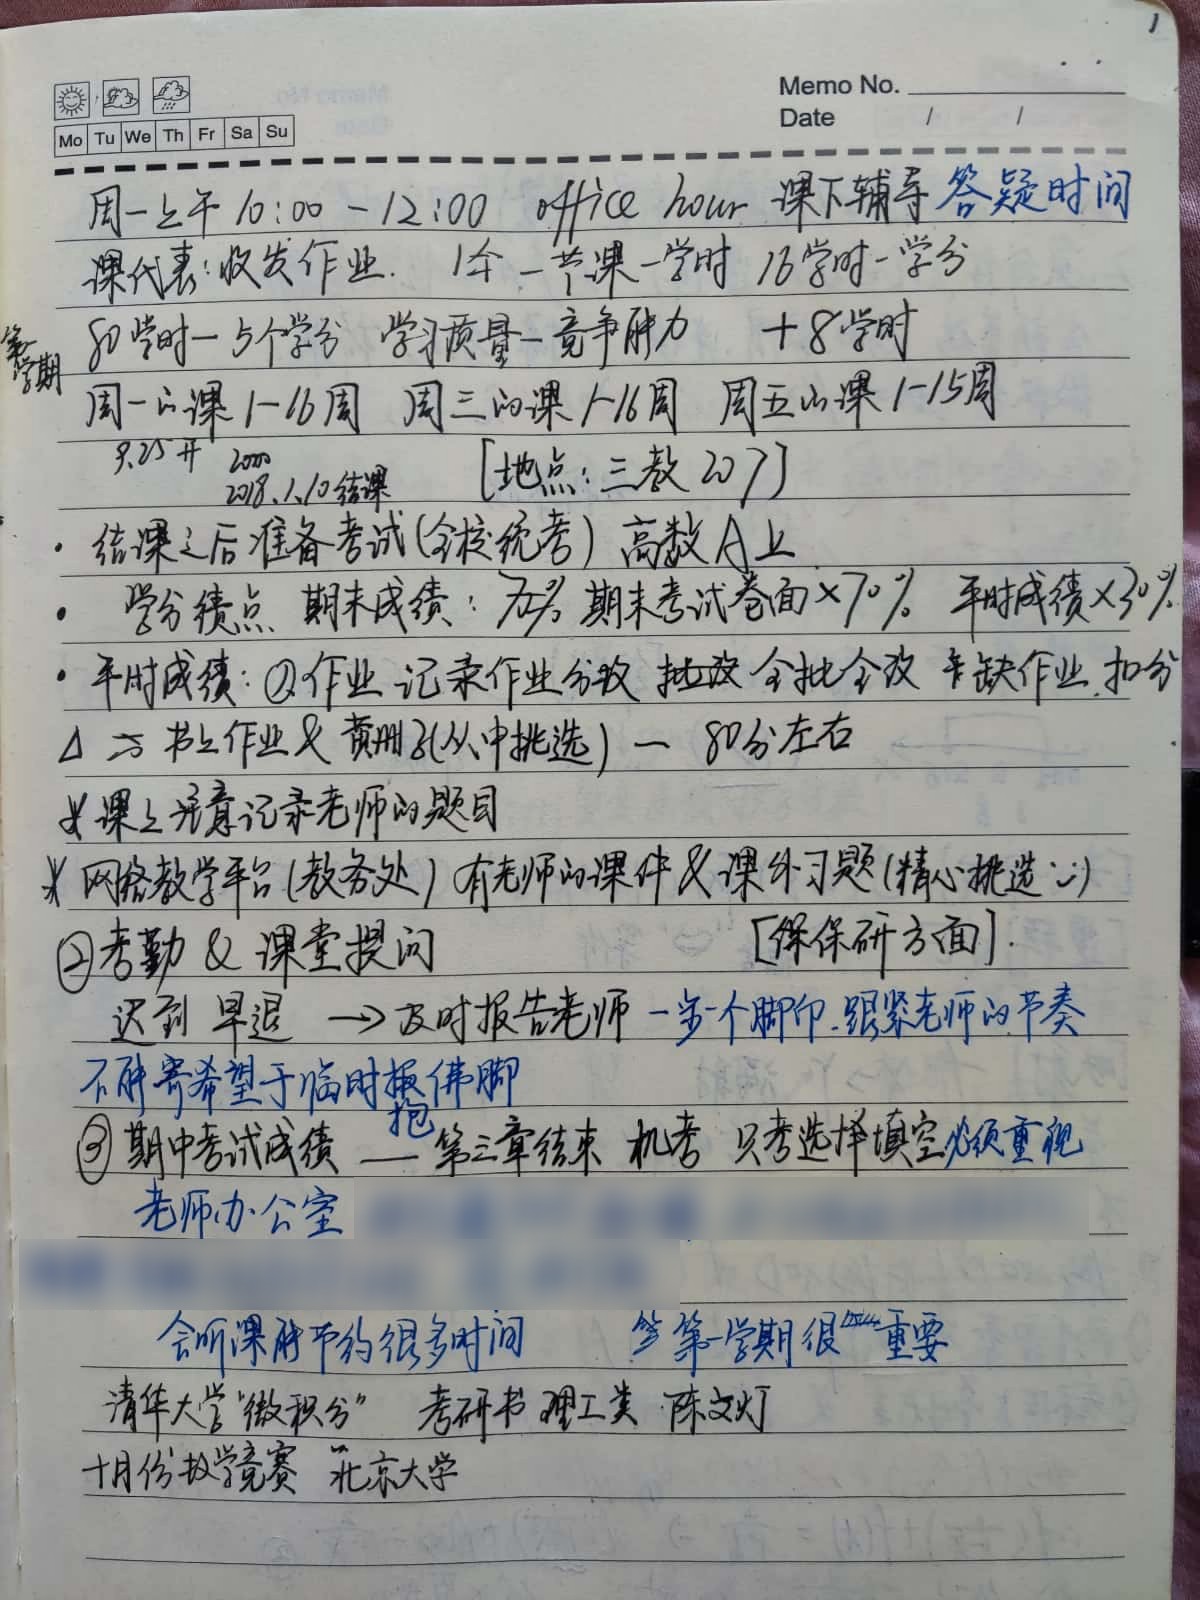 1
Memo No.
Date / /
Mo Tu We Th Fr Sa Su
周一上午 10:00 - 12:00 office hour 课下辅导 答疑时间
课代表:收发作业. 1本 一节课一学时 16学时一学分
第一学期
80学时一5个学分 学习质量一竞争能力 +8学时
周一的课1-16周 周三的课1-16周 周五的课1-15周
9.25开
2018.1.10结课 [地点:三教207]
· 结课之后准备考试(全校统考) 高数A上
· 学分绩点 期末成绩: 期末考试卷面×70% 平时成绩×30%
· 平时成绩:①作业 记录作业分数 批改 全批全改 缺作业扣分
△ 书上作业&黄册子(从中挑选) — 80分左右
* 课上注意记录老师的题目
* 网络教学平台(教务处)有老师的课件&课外习题(精心挑选)
②考勤 & 课堂提问 [保研方面].
迟到 早退 → 及时报告老师 一步一个脚印.跟紧老师的节奏
不能寄希望于临时抱佛脚
③期中考试成绩 —— 第三章结束 机考 只考选择填空 必须重视
老师办公室
会听课能节约很多时间 第一学期很重要
清华大学"微积分" 考研书 理工类 陈文灯
十月份数学竞赛 北京大学